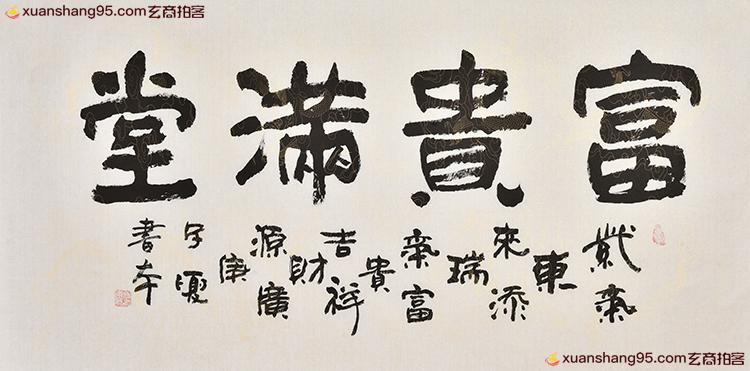 xuanshang95.com玄商拍客
xuanshang95.com玄商拍客
富貴滿堂
紫氣
東
來添
瑞
氣富
貴
吉祥
財
源廣
庚
子夏
xuanshang95.com玄商拍客